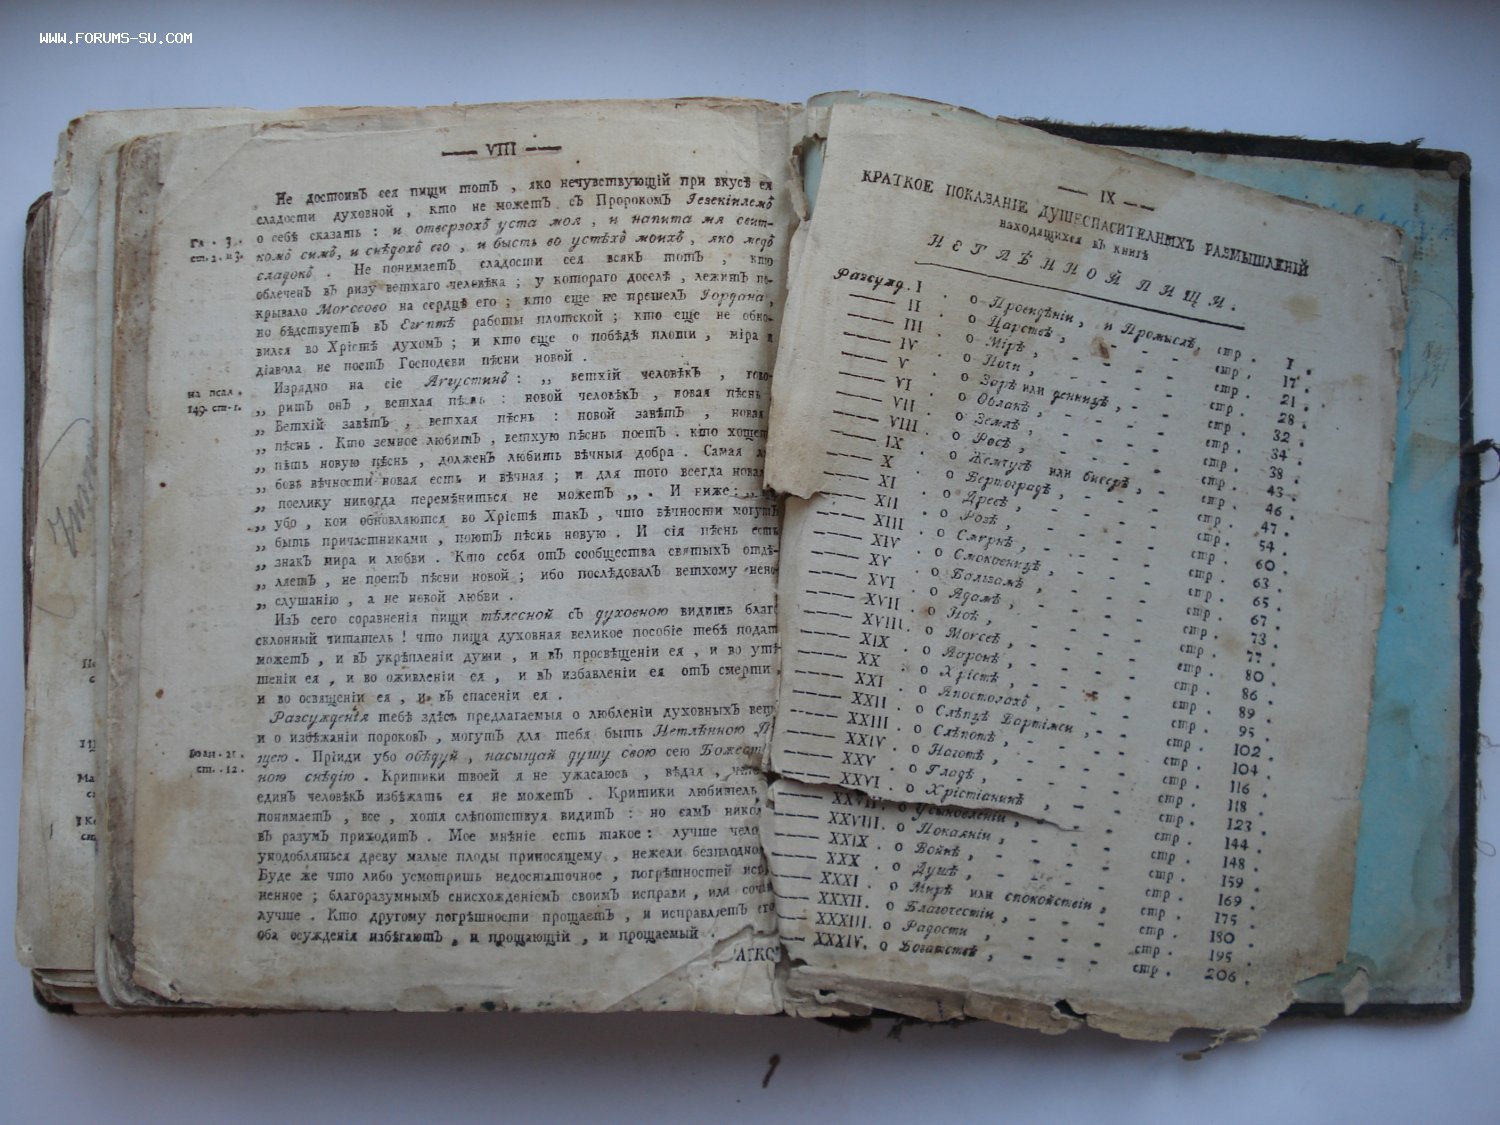 WWW.FORUMS-SU.COM
— VIII —
Не достоинъ сея пищи тотъ , яко нечувствующій при вкусѣ ея
сладости духовной , кто не можетъ съ Пророкомъ Іезекіилемъ
о себѣ сказать : и отверзохъ уста моя , и напита мя свит-
Гл . 3 .
комъ симъ, и снѣдохъ его , и бысть во устѣхъ моихъ , яко медъ
ст. 2. и 3.
сладокъ . Не понимаетъ сладости сея всякъ тотъ , кто
облеченъ въ ризу ветхаго человѣка ; у котораго доселѣ , лежитъ по-
крывало Моѵсеово на сердцѣ его ; кто еще не прешелъ Іордана ,
но бѣдствуетъ въ Егѵптѣ работы плотской ; кто еще не обно-
вился во Хрістѣ духомъ ; и кто еще о побѣдѣ плоти , міра и
діавола не поетъ Господеви пѣсни новой .
на псал .
Изрядно на сіе Аѵгустинъ : ,, ветхій человѣкъ , гово-
149. ст. 1.
,, ритъ онъ , ветхая пѣснь : новой человѣкъ , новая пѣснь
,, Ветхій завѣтъ , ветхая пѣснь : новой завѣтъ , новая
,, пѣснь . Кто земное любитъ , ветхую пѣснь поетъ . кто хощетъ
,, пѣть новую пѣснь , долженъ любить вѣчныя добра . Самая
,, бовь вѣчности новая есть и вѣчная ; и для того всегда новая
,, поелику никогда перемѣниться не можетъ ,, . И ниже : ,,
,, убо , кои обновляются во Хрістѣ такъ , что вѣчности могутъ
,, быть причастниками , поютъ пѣснь новую . И сія пѣснь есть
,, знакъ мира и любви . Кто себя отъ сообщества святыхъ отдѣ-
,, ляетъ , не поетъ пѣсни новой ; ибо послѣдовалъ ветхому непо-
,, слушанію , а не новой любви .
Изъ сего соравненія пищи тѣлесной съ духовною видишь благо
склонный читатель ! что пища духовная великое пособіе тебѣ подать
можетъ , и въ укрѣпленіи души , и въ просвѣщеніи ея , и во утѣ-
шеніи ея , и во оживленіи ея , и въ избавленіи ея отъ смерти ,
и во освященіи ея , и въ спасеніи ея .
Разсужденія тебѣ здѣсь предлагаемыя о любленіи духовныхъ вещ
и о избѣжаніи пороковъ , могутъ для тебя быть Нетлѣнною Пи
Іоан. 21.
щею . Пріиди убо обѣдуй , насыщай душу свою сею Божест
ст. 12.
ною снѣдію . Критики твоей я не ужасаюсь , вѣдая , что
единъ человѣкъ избѣжать ея не можетъ . Критики любитель
понимаетъ , все , хотя слѣпотствуя видитъ : но самъ никог
въ разумъ приходитъ . Мое мнѣніе есть такое : лучше чело
уподобляться древу малые плоды приносящему , нежели безплодно
Буде же что либо усмотришь недостаточное , погрѣшностей испо
ненное ; благоразумнымъ снисхожденіемъ своимъ исправи , или сочи
лучше . Кто другому погрѣшности прощаетъ , и исправляетъ его
оба осужденія избѣгаютъ , и прощающій , и прощаемый .
— IX —
КРАТКОЕ ПОКАЗАНІЕ ДУШЕСПАСИТЕЛНЫХЪ РАЗМЫШЛЕНІЙ
находящихся въ книгѣ
НЕТЛѢННОЙ ПИЩИ .
Разсужд. I . о Провидѣніи , и Промыслѣ, стр . 1 .
—— II . о Царствѣ , - - - стр . 17 .
—— III . о Мірѣ , - - - стр . 21 .
—— IV . о Нощи , - - - стр . 28 .
—— V . о Зарѣ или денницѣ , - стр . 32 .
—— VI . о Облакѣ , - - - стр . 34 .
—— VII . о Землѣ , - - - стр . 38 .
—— VIII . о Росѣ , - - - стр . 43 .
—— IX . о Жемчугѣ или бисерѣ , - стр . 46 .
—— X . о Вертоградѣ , - - - стр . 47 .
—— XI . о Древѣ , - - - стр . 54 .
—— XII . о Розѣ , - - - стр . 60 .
—— XIII . о Смѵрнѣ , - - - стр . 63 .
—— XIV . о Смоковницѣ , - - - стр . 65 .
—— XV . о Бальзамѣ , - - - стр . 67 .
—— XVI . о Адамѣ , - - - стр . 73 .
—— XVII . о Ноѣ , - - - стр . 77 .
—— XVIII . о Моѵсеѣ , - - - стр . 80 .
—— XIX . о Ааронѣ , - - - стр . 86 .
—— XX . о Хрістѣ , - - - стр . 89 .
—— XXI . о Апостолахъ , - - - стр . 95 .
—— XXII . о Слѣпцѣ Вартімеи , - - стр . 102 .
—— XXIII . о Слѣпотѣ , - - - стр . 104 .
—— XXIV . о Наготѣ , - - - стр . 116 .
—— XXV . о Гладѣ , - - - стр . 118 .
—— XXVI . о Хрістіанинѣ , - - - стр . 123 .
—— XXVII . о Усыновленіи , - - - стр . 144 .
—— XXVIII . о Покаяніи , - - - стр . 148 .
—— XXIX . о Войнѣ , - - - стр . 159 .
—— XXX . о Душѣ , - - - стр . 169 .
—— XXXI . о Мирѣ или спокойствіи , стр . 175 .
—— XXXII . о Благочестіи , - - - стр . 180 .
—— XXXIII. о Радости , - - - стр . 195 .
—— XXXIV. о Богатствѣ , - - - стр . 206 .